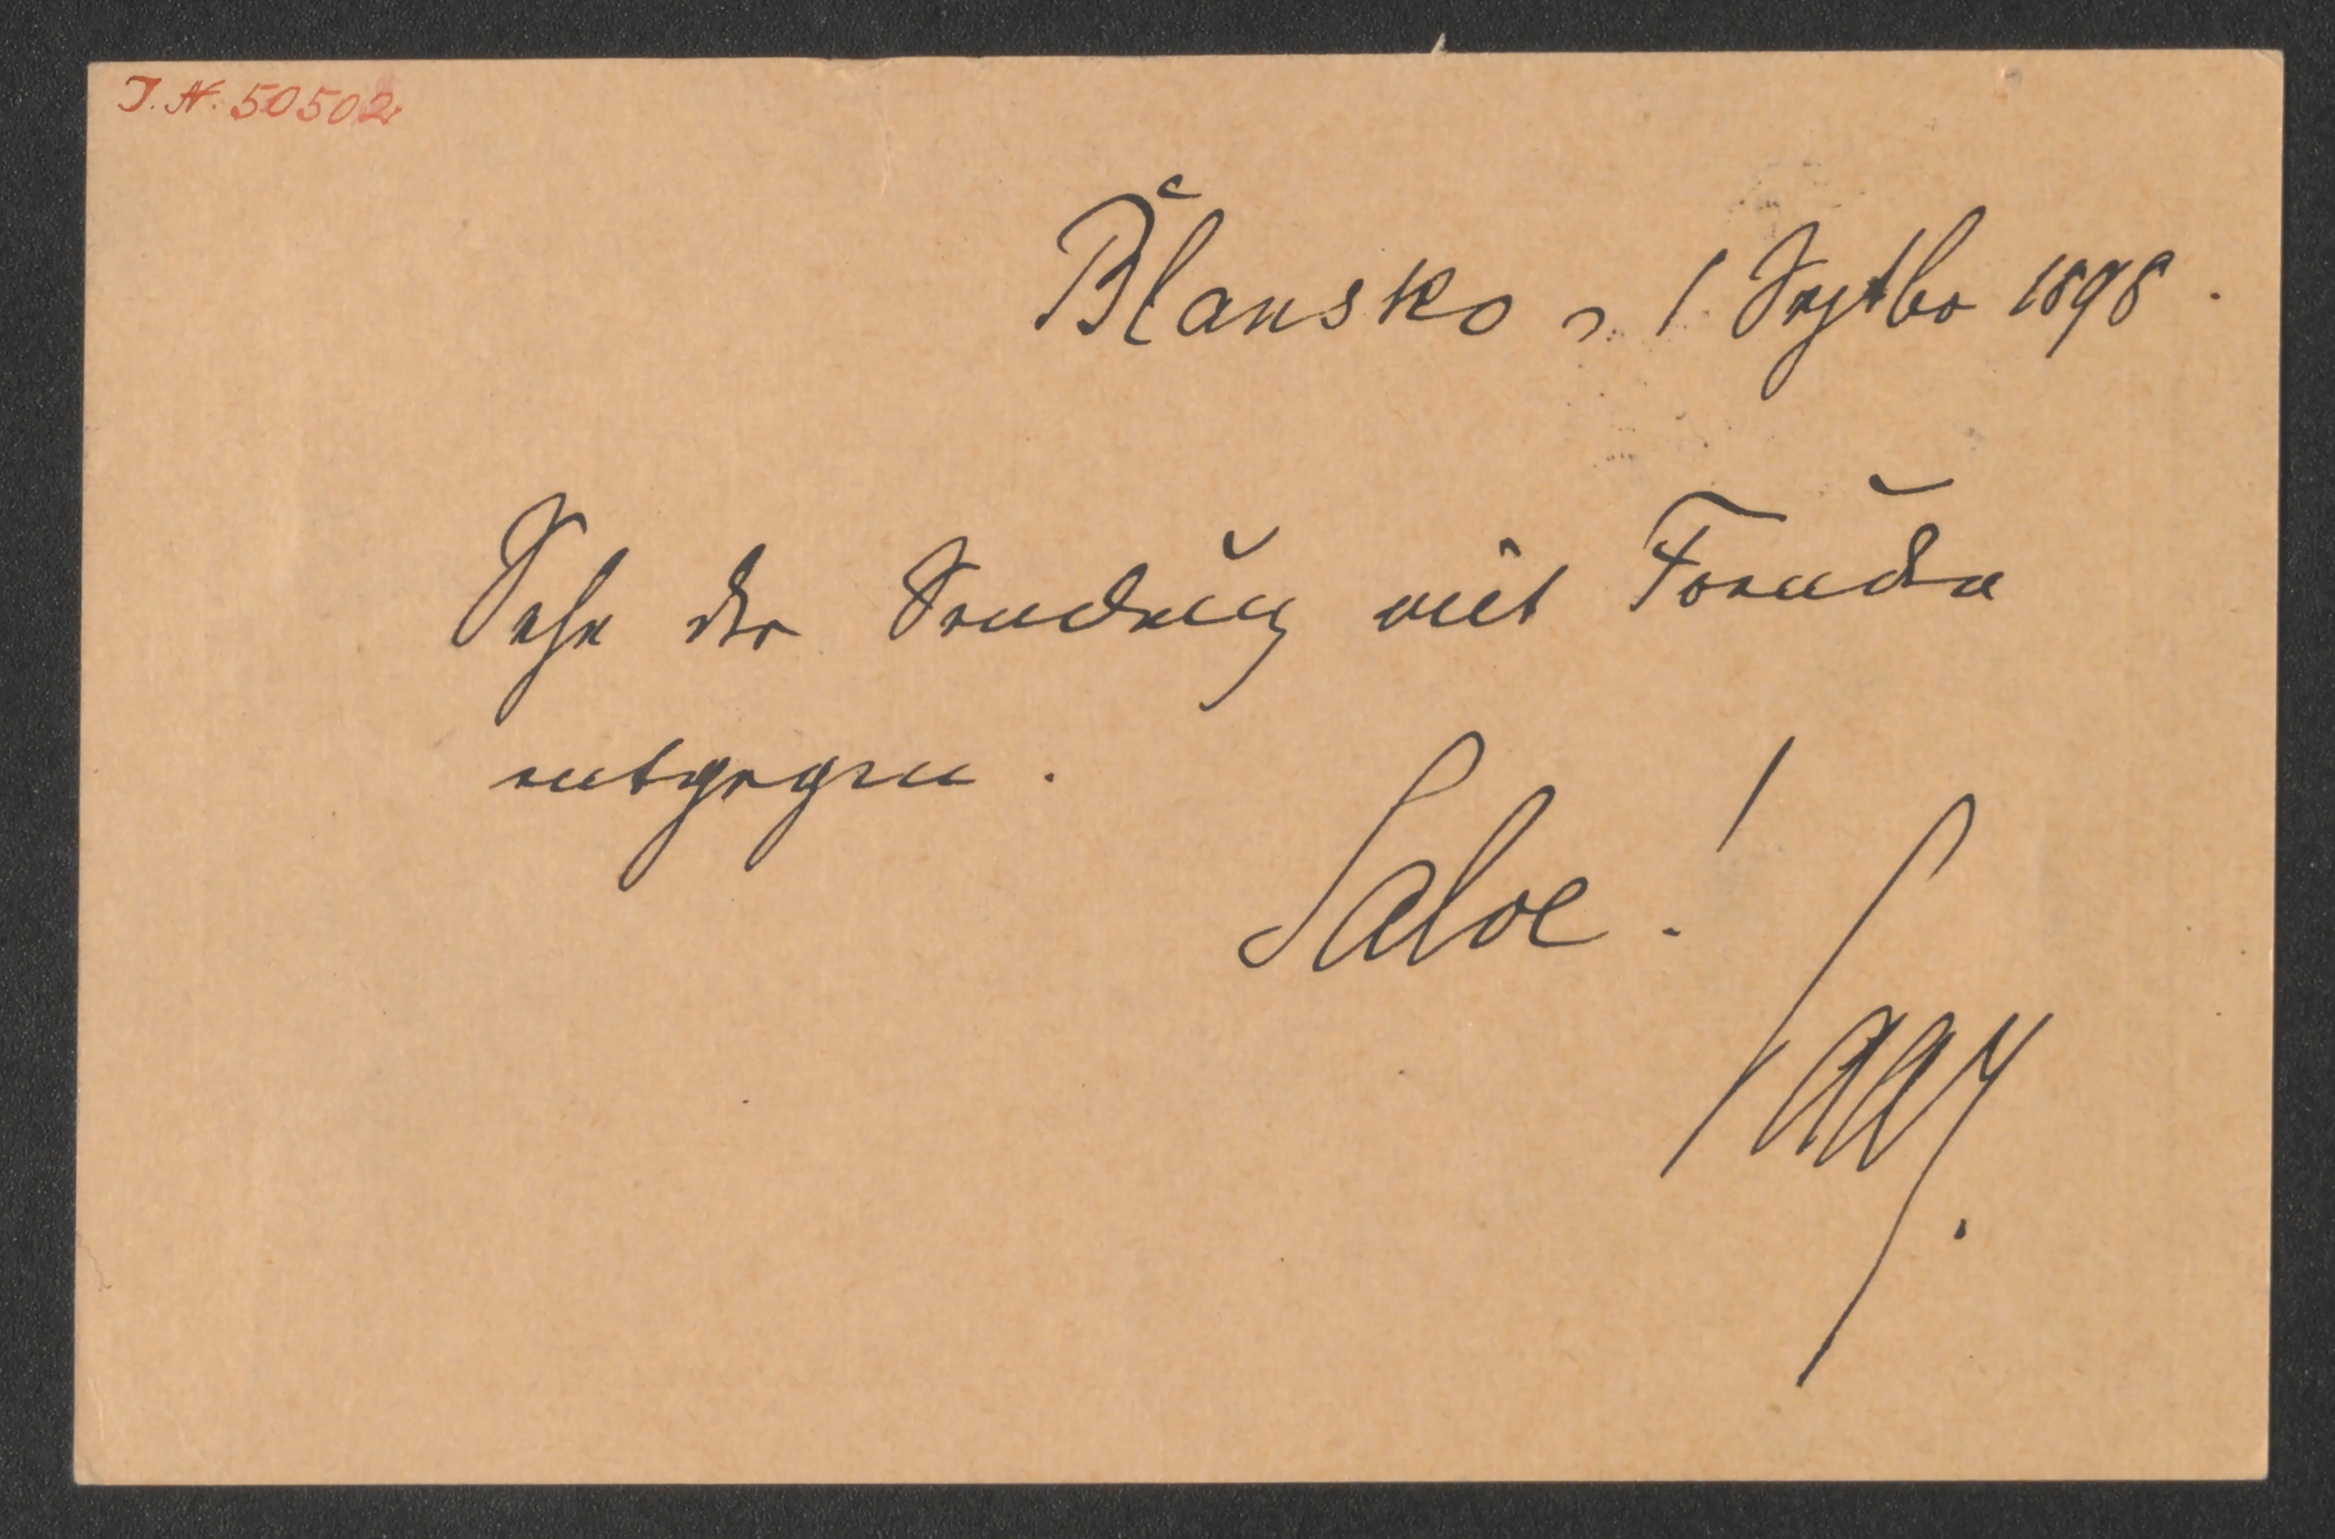 J. N. 50502
Blansko, 1 Septbr 1898.
Sehe der Sendung mit Freuden
entgegen.
Salve!
Saar.